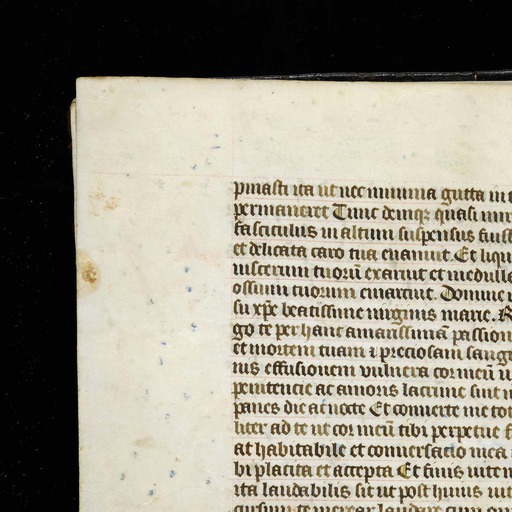 pinasti ita ut nec minima gutta in
permaneret Tunc demqꝫ quasi mir
fasciculus in altum suspensus fuis
et delicata caro tua euanuit. Et liqu
uiscerum tuorū exaruit et medull
ossium tuorum emarcuit. Domine
su xp̄e beatissime uirginis marie. R
go te per hanc amarissimā passion
et mortem tuam ⁊ preciosam sang
nis effusionem vulnera cor meū
penitencie ac amoris lacrime sint
panes die ac nocte Et conuerte me tot
liter ad te ut cor meū tibi perpetue
at habitabile et conuersatio mea
bi placita et accepta Et finis uite
ita laudabilis sit ut post huius uit
cursum te merear laudare cum